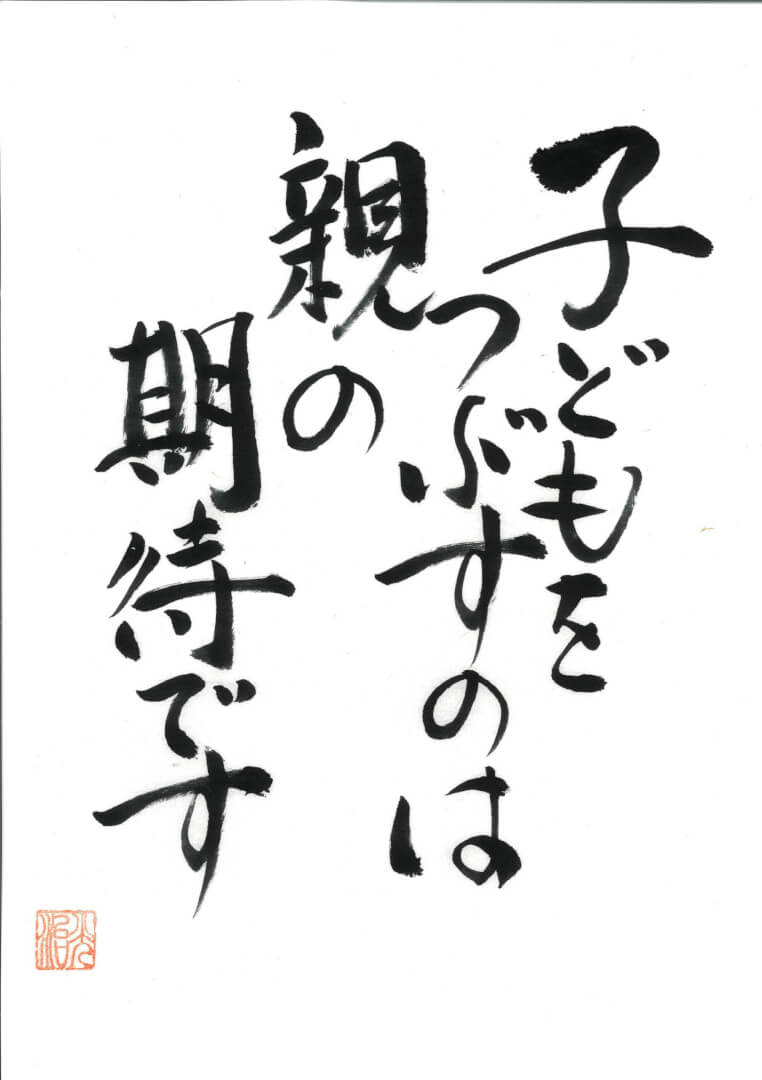 子どもを
つぶすのは
親の
期待です